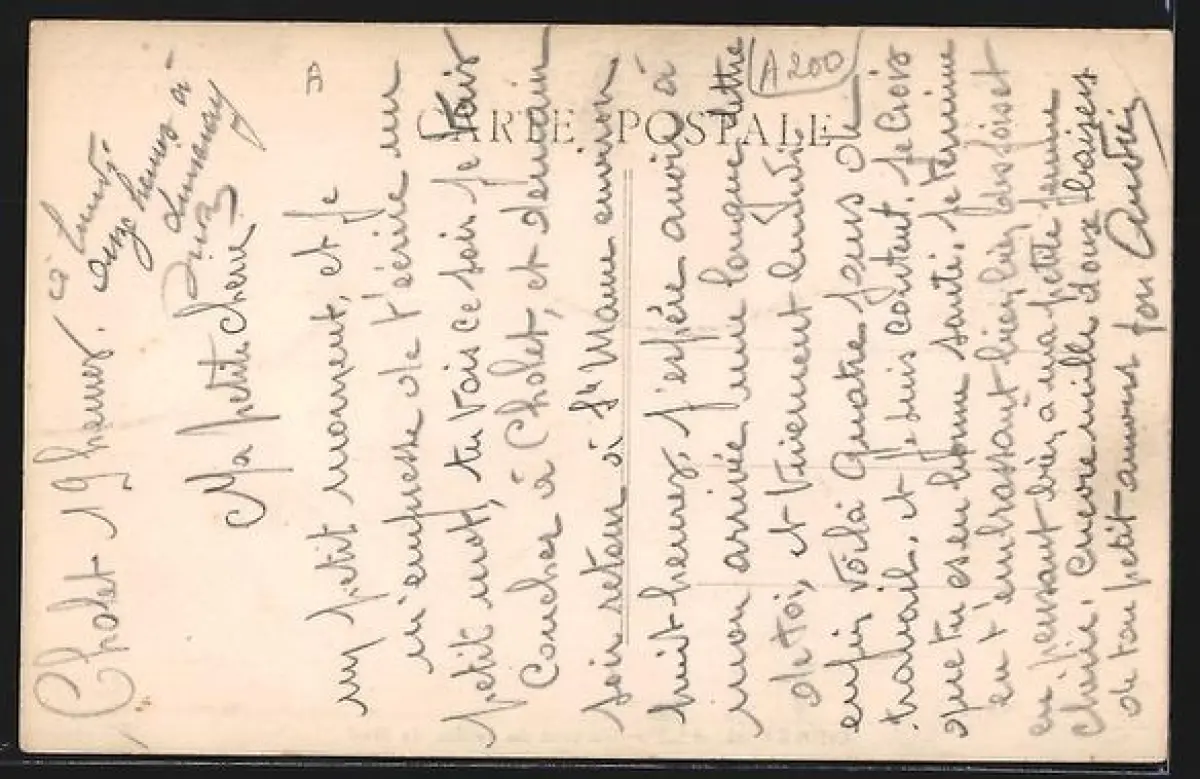 CARTE POSTALE
A
A 200
Cholet 19 heures. à
Lundi
onze heures à
Ma petite chérie
un petit moment, et je
m'empresse de t'écrire un
petit mot, tu vois ce soir je vais
coucher à Cholet, et demain
soir retour à St Mame environ
huit heures, j'espère avoir à
mon arrivée une longue lettre
de toi, et vivement lundi.
enfin voilà quatre jours de
travail, et je suis content. je crois
que tu es en bonne santé. je termine
en t'embrassant bien bien des fois et
en pensant bien à ma petite femme
chérie. encore mille doux baisers
de ton petit amour ton André